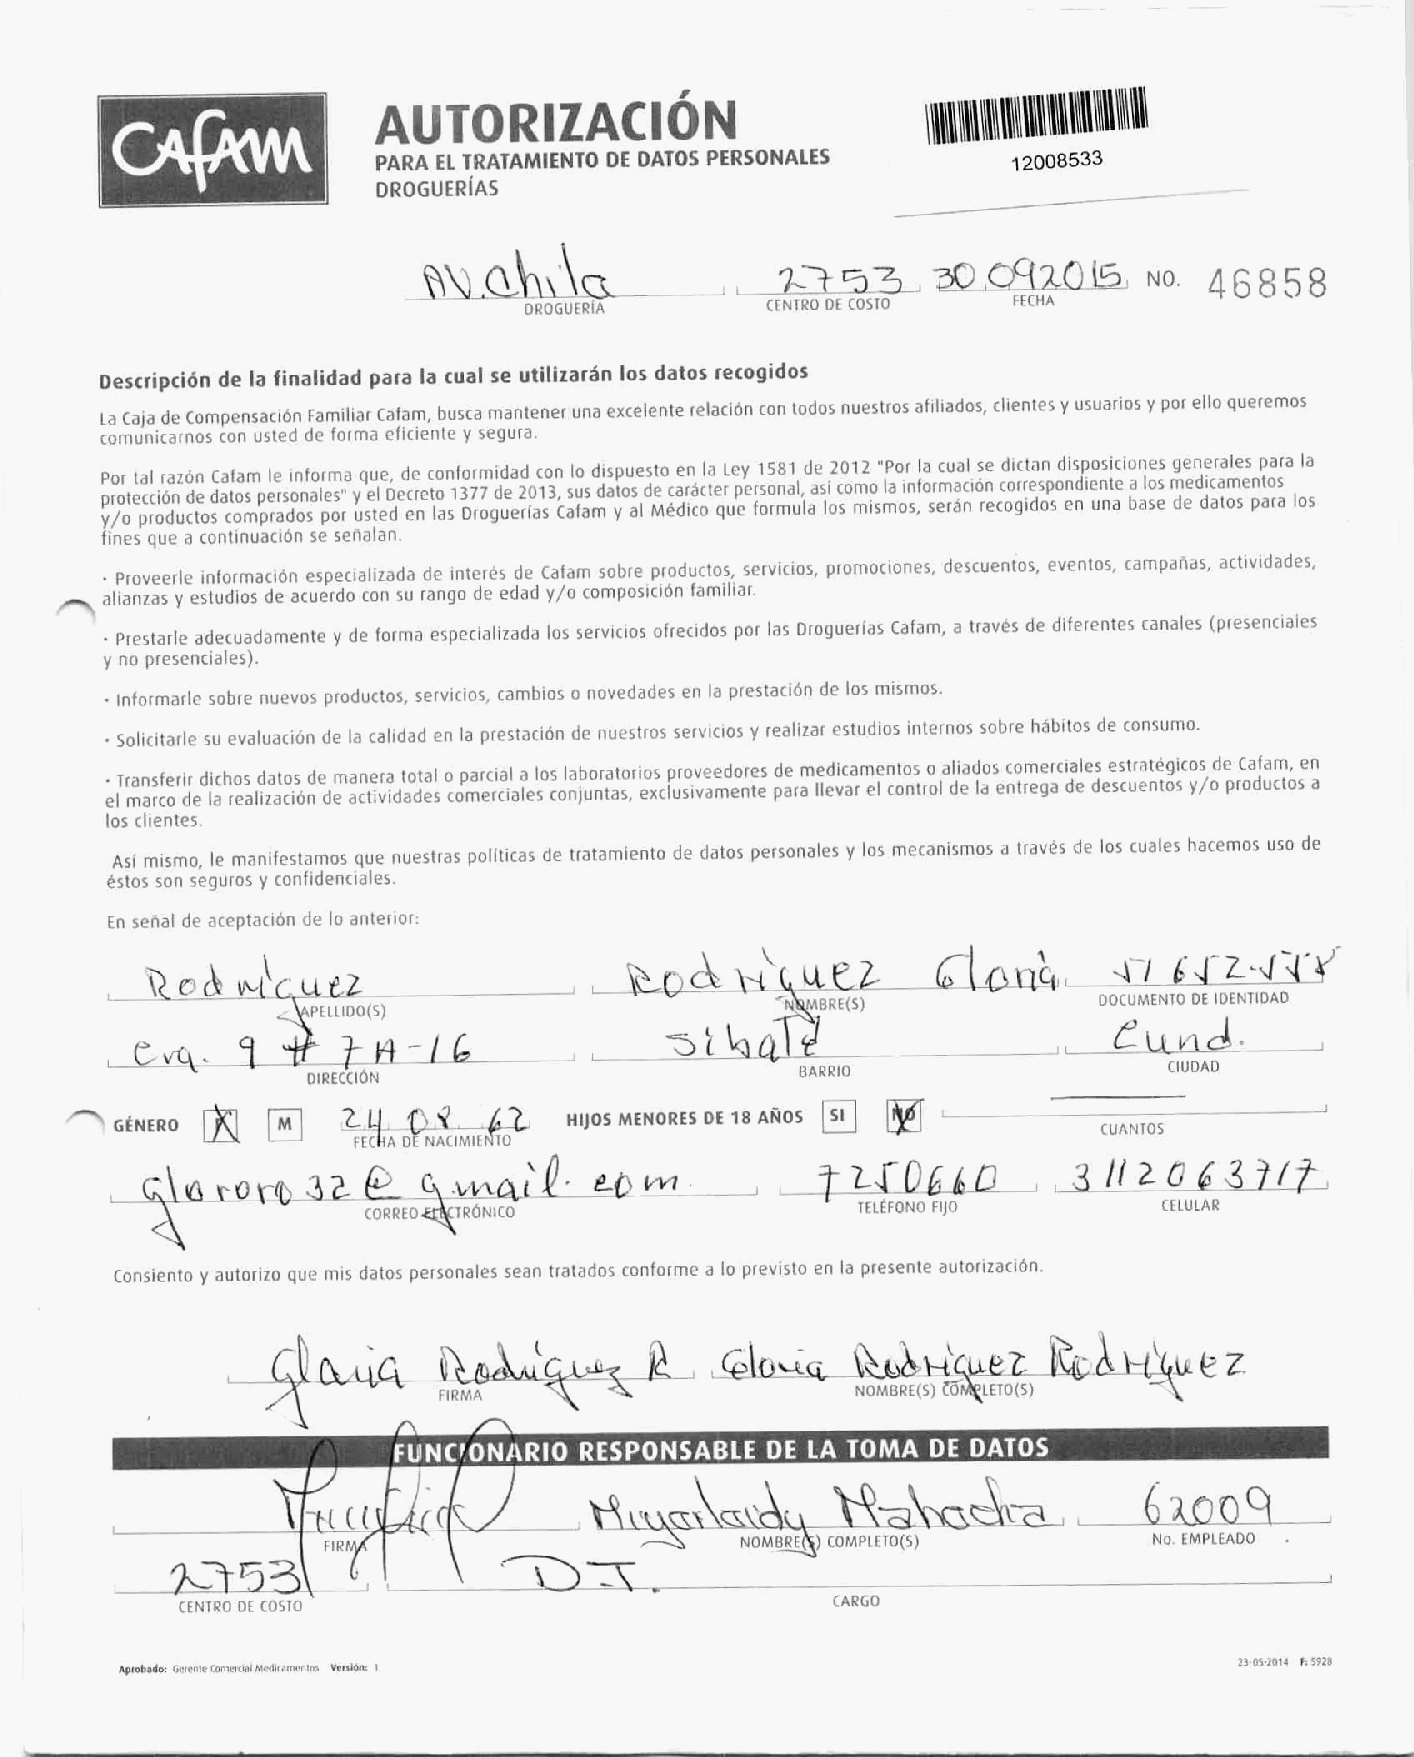 CAFAM
AUTORIZACIÓN
PARA EL TRATAMIENTO DE DATOS PERSONALES
DROGUERÍAS
12008533
AV. Chila 2753 30 09 2015 NO. 46858
DROGUERÍA CENTRO DE COSTO FECHA
Descripción de la finalidad para la cual se utilizarán los datos recogidos
La Caja de Compensación Familiar Cafam, busca mantener una excelente relación con todos nuestros afiliados, clientes y usuarios y por ello queremos
comunicarnos con usted de forma eficiente y segura.
Por tal razón Cafam le informa que, de conformidad con lo dispuesto en la Ley 1581 de 2012 "Por la cual se dictan disposiciones generales para la
protección de datos personales" y el Decreto 1377 de 2013, sus datos de carácter personal, así como la información correspondiente a los medicamentos
y/o productos comprados por usted en las Droguerías Cafam y al Médico que formula los mismos, serán recogidos en una base de datos para los
fines que a continuación se señalan.
· Proveerle información especializada de interés de Cafam sobre productos, servicios, promociones, descuentos, eventos, campañas, actividades,
alianzas y estudios de acuerdo con su rango de edad y/o composición familiar.
· Prestarle adecuadamente y de forma especializada los servicios ofrecidos por las Droguerías Cafam, a través de diferentes canales (presenciales
y no presenciales).
· Informarle sobre nuevos productos, servicios, cambios o novedades en la prestación de los mismos.
· Solicitarle su evaluación de la calidad en la prestación de nuestros servicios y realizar estudios internos sobre hábitos de consumo.
· Transferir dichos datos de manera total o parcial a los laboratorios proveedores de medicamentos o aliados comerciales estratégicos de Cafam, en
el marco de la realización de actividades comerciales conjuntas, exclusivamente para llevar el control de la entrega de descuentos y/o productos a
los clientes.
Así mismo, le manifestamos que nuestras políticas de tratamiento de datos personales y los mecanismos a través de los cuales hacemos uso de
éstos son seguros y confidenciales.
En señal de aceptación de lo anterior:
Rodriguez Rodriguez Gloria 51652558
APELLIDO(S) NOMBRE(S) DOCUMENTO DE IDENTIDAD
Crq. 9 # 7A-16 Sibaté Cund.
DIRECCIÓN BARRIO CIUDAD
GÉNERO M 24 08 62 HIJOS MENORES DE 18 AÑOS SI NO
FECHA DE NACIMIENTO CUANTOS
glororo32@gmail.com 7250660 3112063717
CORREO ELECTRÓNICO TELÉFONO FIJO CELULAR
Consiento y autorizo que mis datos personales sean tratados conforme a lo previsto en la presente autorización.
Gloria Rodriguez R Gloria Rodriguez Rodriguez
FIRMA NOMBRE(S) COMPLETO(S)
FUNCIONARIO RESPONSABLE DE LA TOMA DE DATOS
Mahecha 62009
FIRMA NOMBRE(S) COMPLETO(S) No. EMPLEADO
2753 D.T.
CENTRO DE COSTO CARGO
Aprobado: Gerente Comercial Medicamentos Versión: 1 23-05-2014 F: 5928